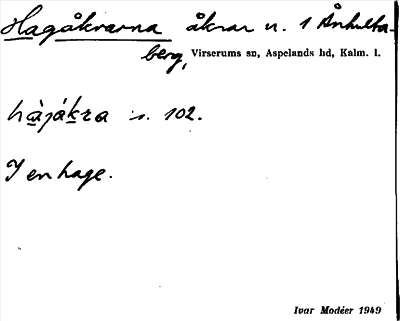 Hagåkrarna åkrar n. 1 Ånhulta-
berg, Virserums sn, Aspelands hd, Kalm. l.
hàjákra s. 102.
I en hage.
Ivar Modéer 1949